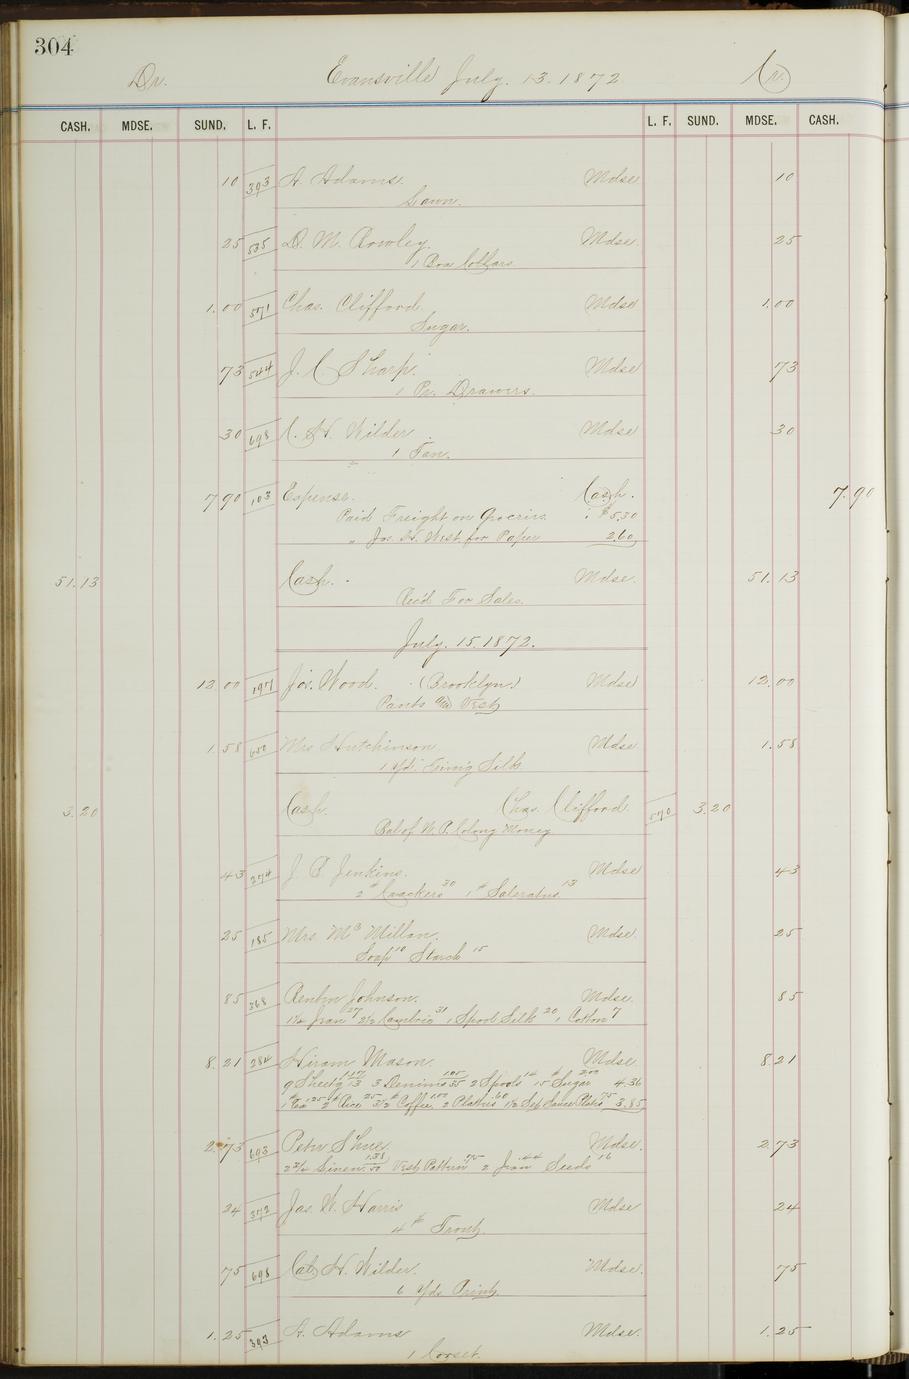 304
Dr. Evansville July. 13. 1872 Cr.
CASH. MDSE. SUND. L. F. L. F. SUND. MDSE. CASH.
10 393 A. Adams. Mdse 10
Lawn.
25 535 D. M. Rowley. Mdse. 25
1 Box Collars
1.00 571 Chas. Clifford. Mdse 1.00
Sugar.
73 544 J. C. Sharp. Mdse 73
1 Pr. Drawers.
30 698 C. H. Wilder. Mdse 30
1 Fan.
7 90 103 Expense. Cash. 7. 90
Paid Freight on Groceries. $5.30
" Jos. H. West for Paper 2.60
51.13 Cash. Mdse. 51.13
Rec'd For Sales.
July. 15. 1872.
12 00 197 Jos. Wood. (Brooklyn.) Mdse 12.00
Pants and Vest
1.58 Mrs Hutchinson Mdse 1.58
1 yd. Silk
3.20 Cash. Chas. Clifford. 570 3.20
Bal of Money
43 274 J. B. Jenkins. Mdse 43
2 # Crackers 30 1 # Saleratus 13
25 185 Mrs. Mc Millan. Mdse. 25
Soap 10 Starch 15
85 368 Reuben Johnson. Mdse. 85
1½ Jean 27 2½ Cambric 31 1 Spool Silk 20 1 Cotton 7
8.21 284 Hiram Mason. Mdse. 8.21
9 Sheetg 1.17 13 3 Denims 1.05 35 2 Spools 14 15 # Sugar 2.00 4.36
1 # Tea 1.25 2 # Rice 25 3½ # Coffee 1.00 2 Plates .60 1/2 Set Plates 75 3.85
2.73 693 Peter Shue. Mdse. 2.73
2¾ Linen 1.38 50 Vest Pattern .75 2 Jean .44 Seeds 16
24 372 Jas. W. Harris Mdse 24
4 # Trout
75 698 Cal. H. Wilder. Mdse. 75
6 yds Print.
1.25 393 A. Adams Mdse. 1.25
1 Corset.